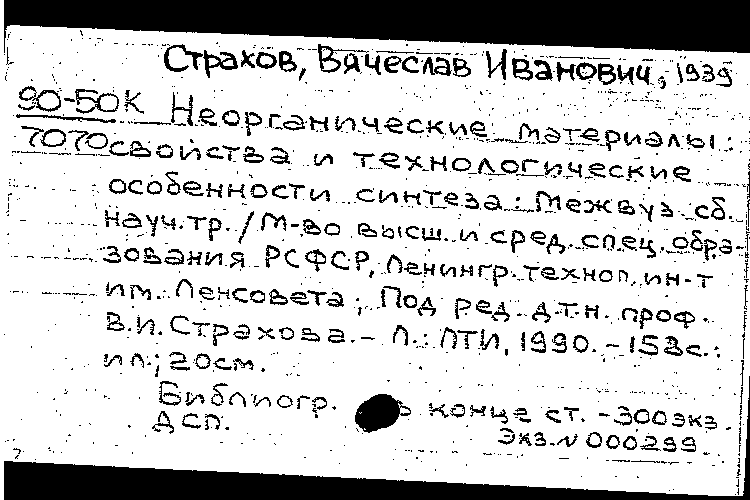 Страхов, Вячеслав Иванович, 1939
90-50К Неорганические материалы:
7070 свойства и технологические
особенности синтеза: Межвуз. сб.
науч. тр. / М-во высш. и сред. спец. обра-
зования РСФСР, Ленингр. технол. ин-т
им. Ленсовета; Под ред. д.т.н. проф.
В.И. Страхова. - Л.: ЛТИ, 1990. - 153с.:
ил.; 20см.
Библиогр. в конце ст. - 300экз.
ДСП. Экз. N 000299.